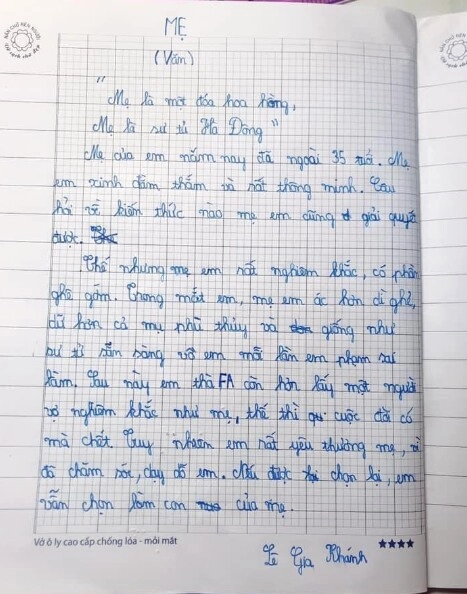 MẸ
(Văn)
"
Mẹ là một đóa hoa hồng,
Mẹ là sư tử Hà Đông"
Mẹ của em năm nay đã ngoài 35 tuổi. Mẹ
em xinh đằm thắm và rất thông minh. Câu
hỏi về kiến thức nào mẹ em cũng giải quyết
được.
Thế nhưng mẹ em rất nghiêm khắc, có phần
ghê gớm. Trong mắt em, mẹ em ác hơn dì ghẻ,
dữ hơn cả mụ phù thủy và giống như
sư tử sẵn sàng vồ em mỗi lần em phạm sai
lầm. Sau này em thà FA còn hơn lấy một người
vợ nghiêm khắc như mẹ, thế thì cuộc đời có
mà chết. Tuy nhiên em rất yêu thương mẹ, vì
đã chăm sóc, dạy dỗ em. Nếu được chọn lại, em
vẫn chọn làm con của mẹ.
Vở ô ly cao cấp chống lóa - mỏi mắt
Lê Gia Khánh